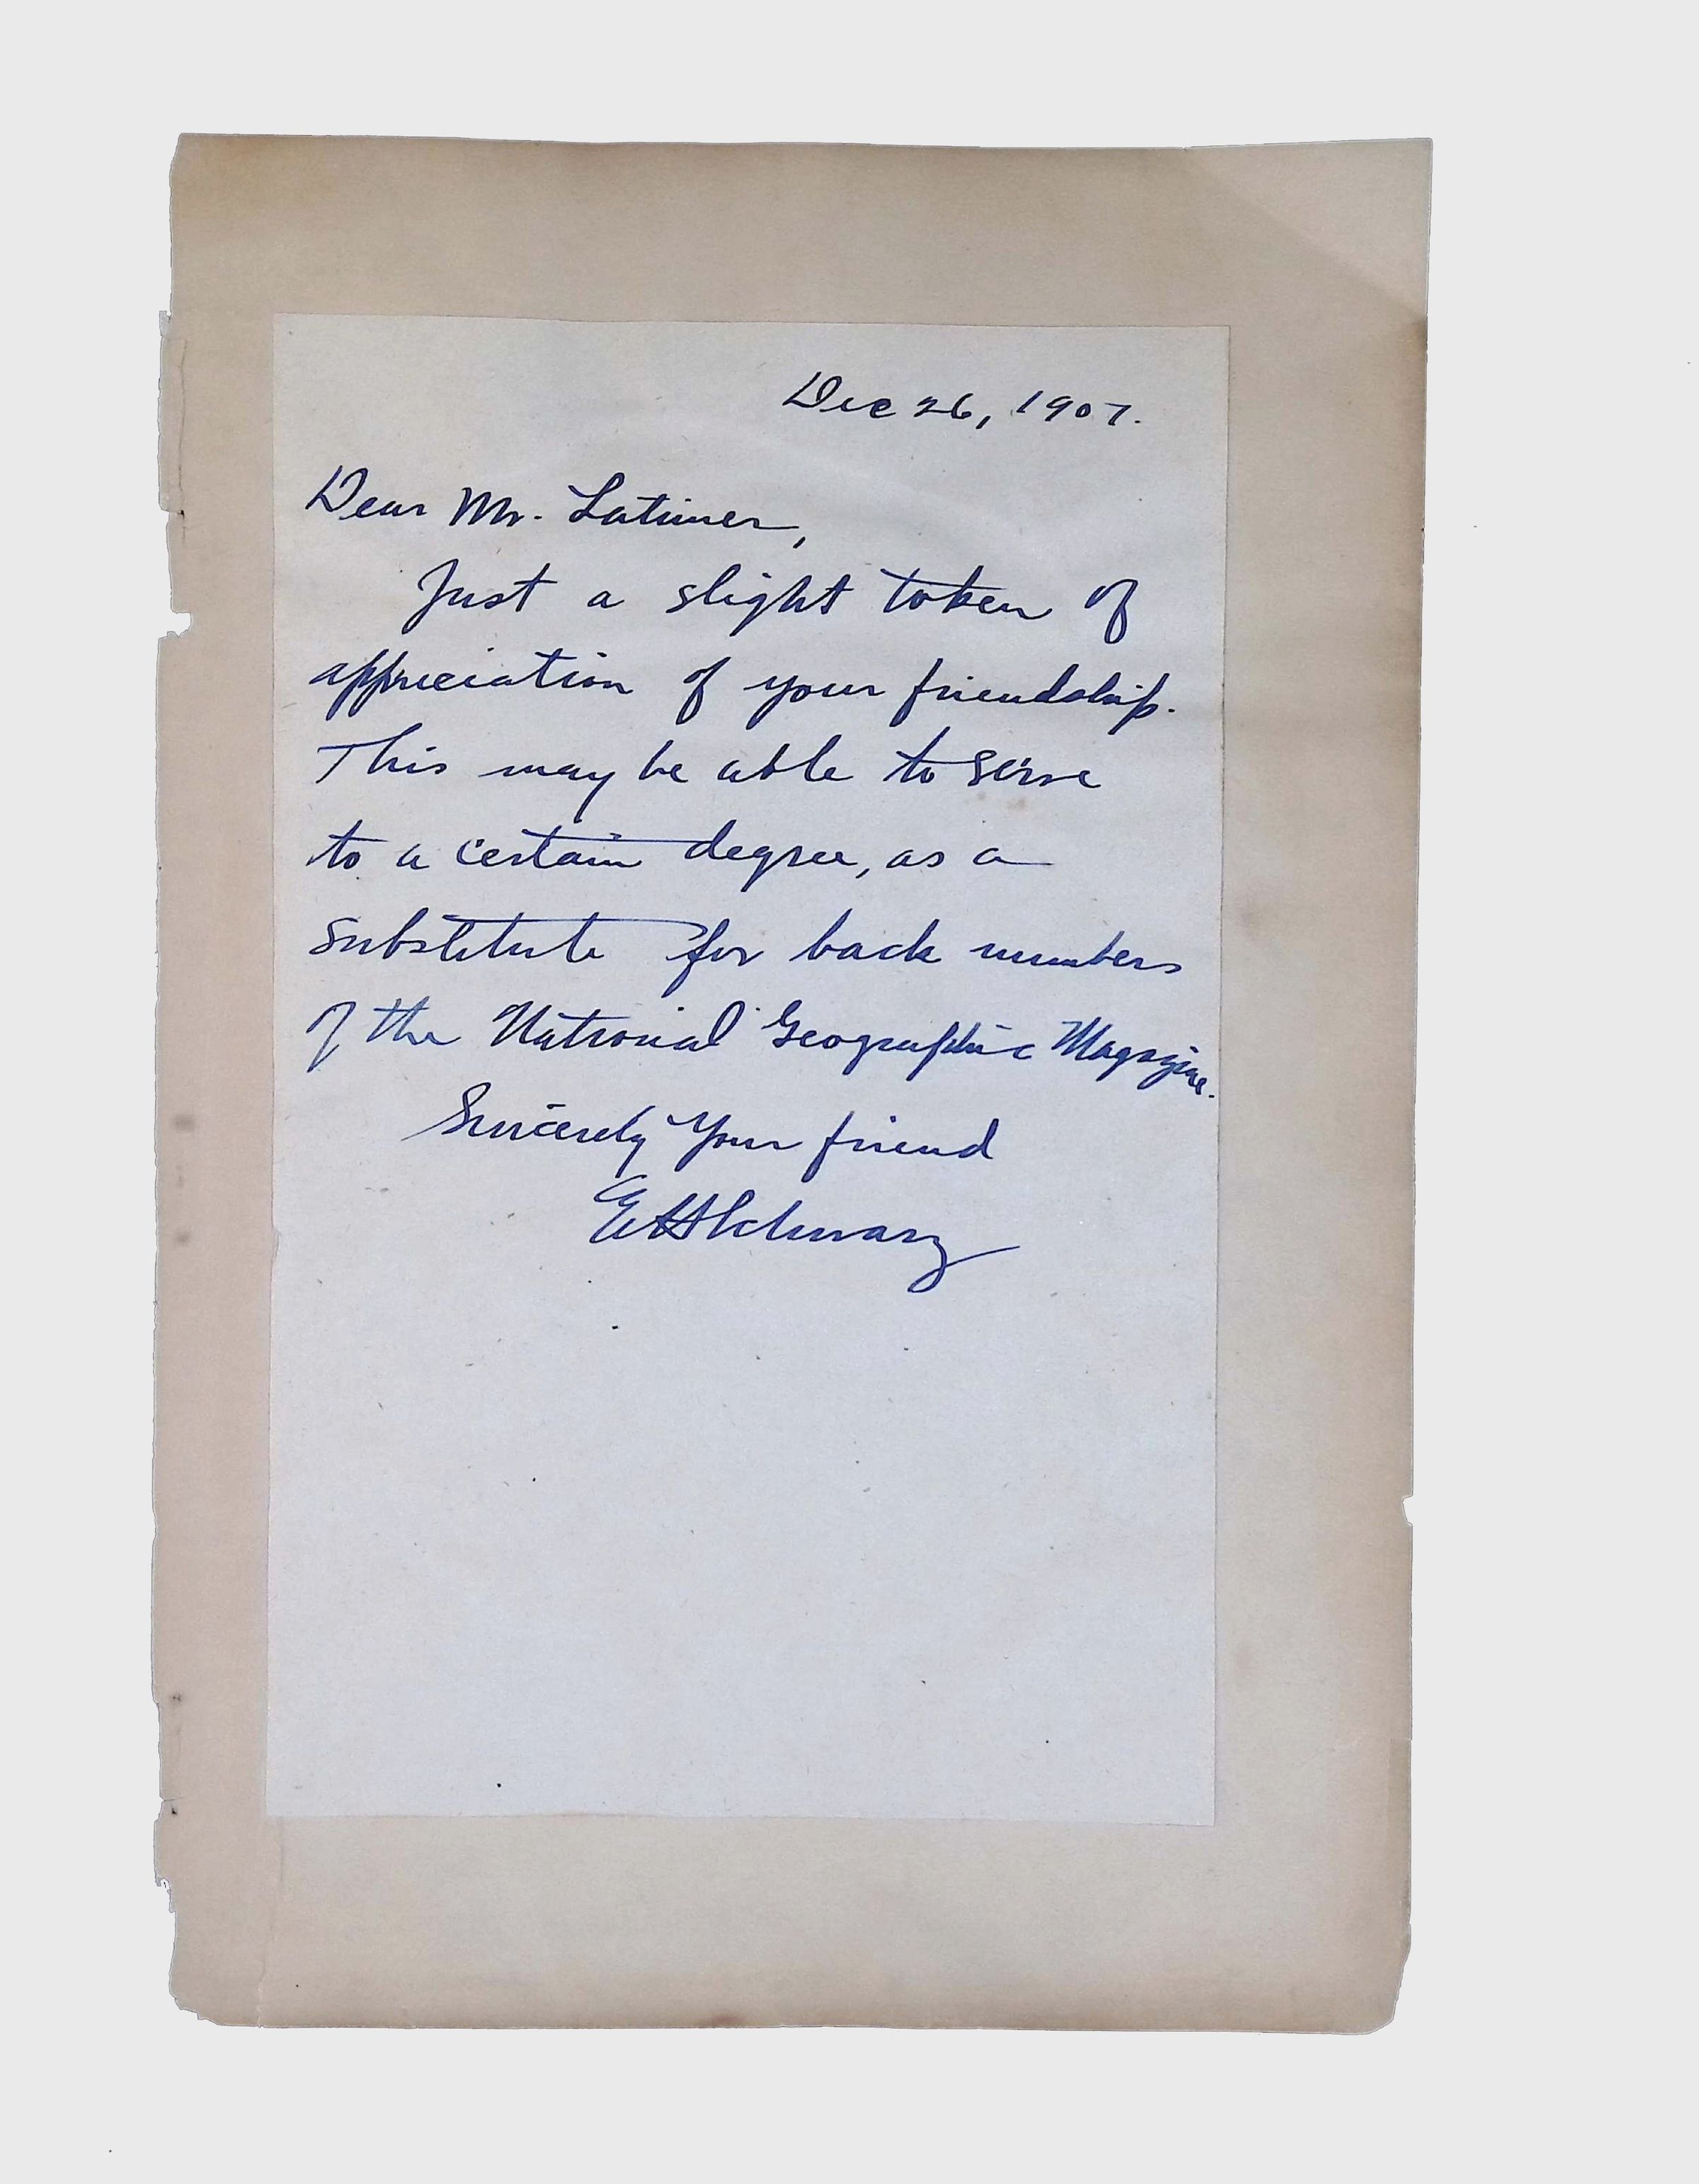 Dec 26, 1907.
Dear Mr. Latimer,
Just a slight token of
appreciation of your friendship.
This may be able to serve
to a certain degree, as a
substitute for back numbers
of the National Geographic Magazine.
Sincerely Your friend
E H Schwarz